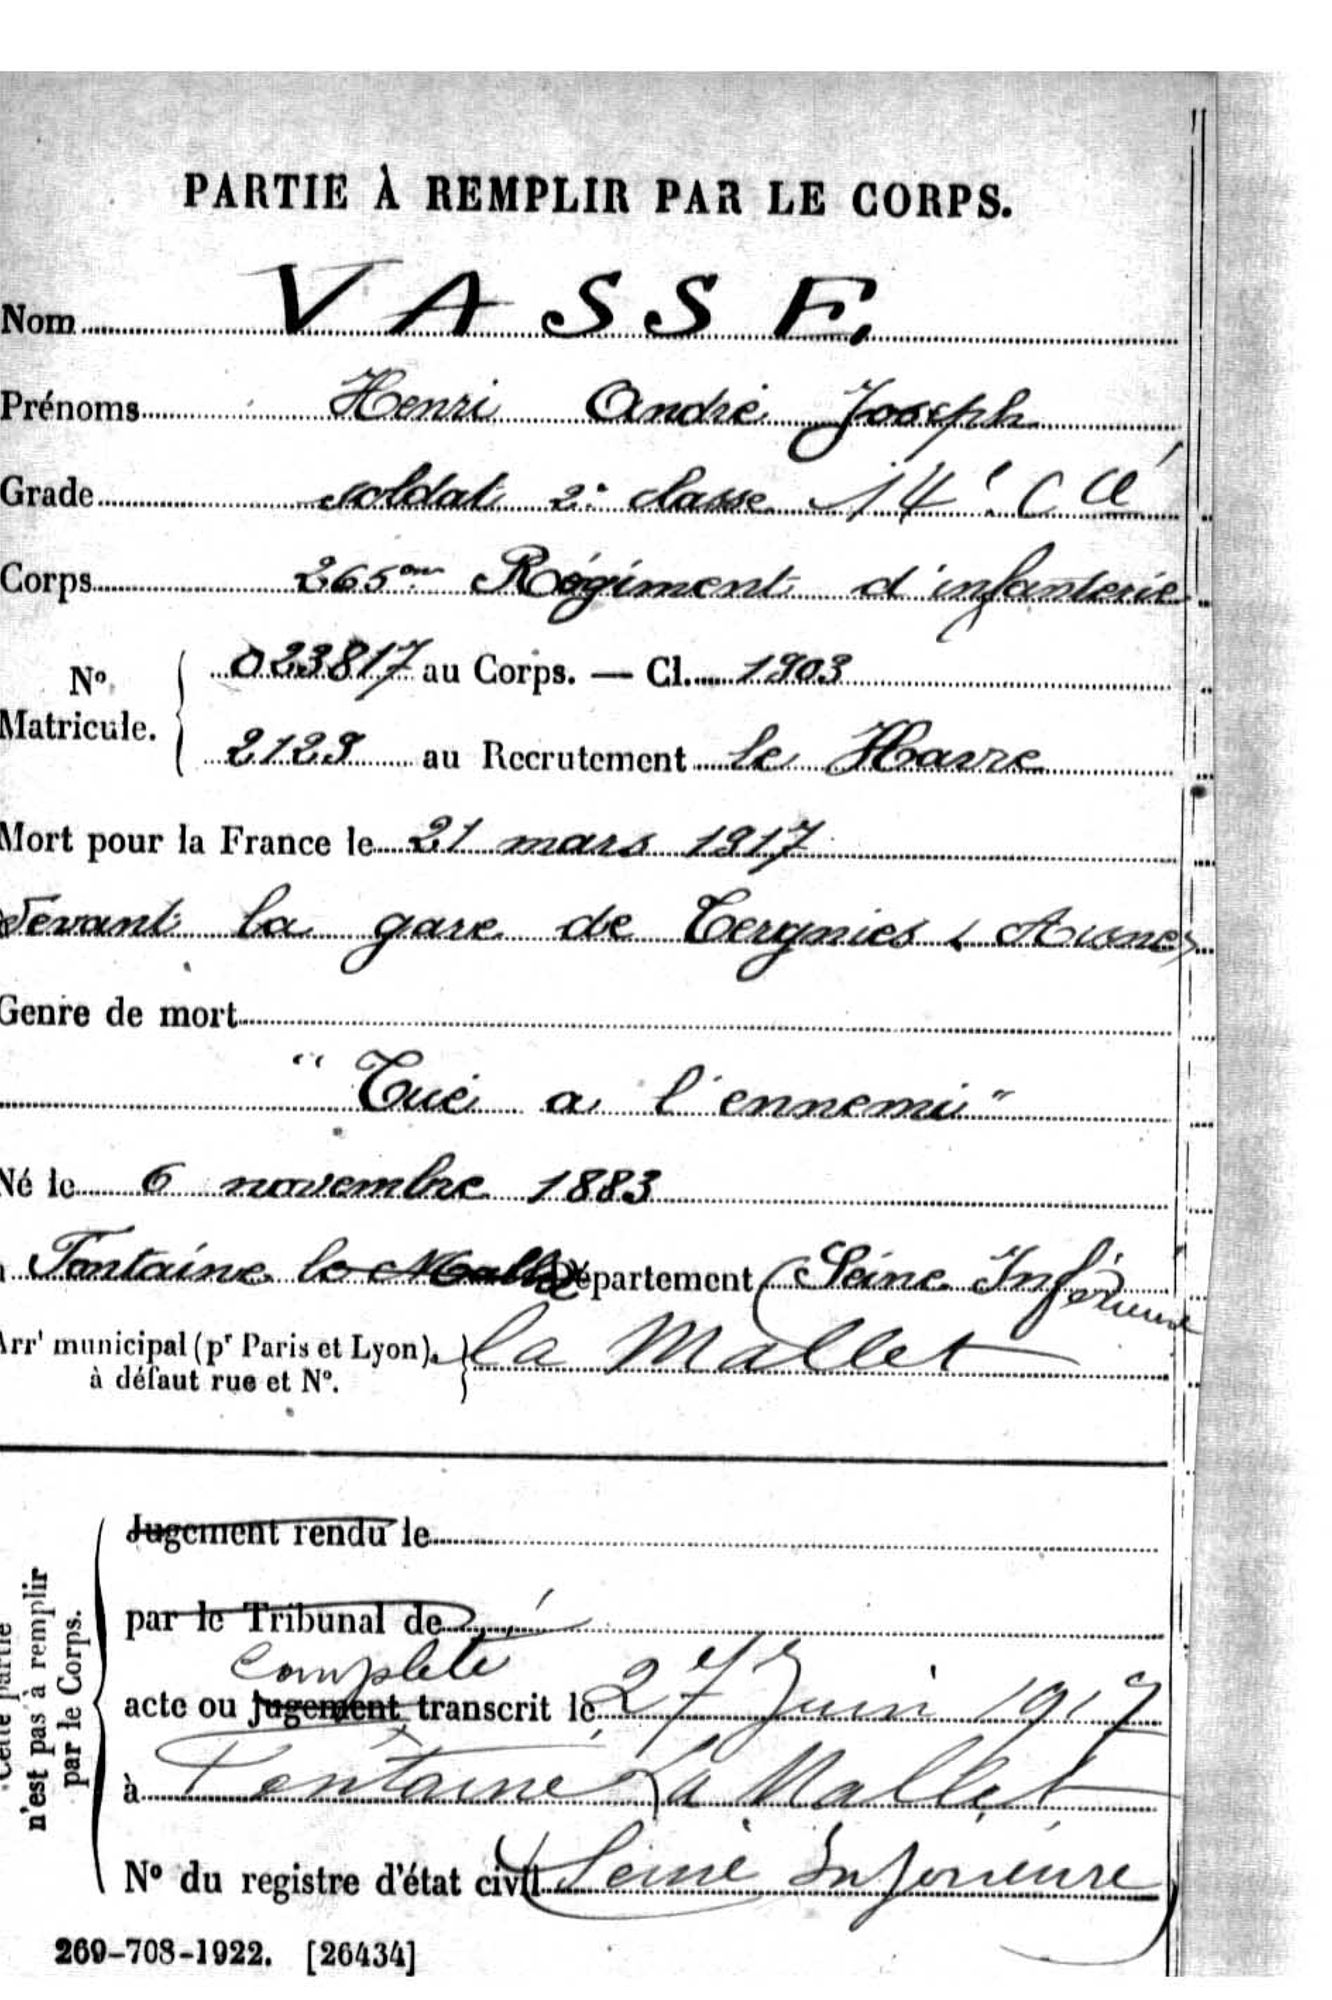 PARTIE À REMPLIR PAR LE CORPS.
Nom VASSE
Prénoms Henri André Joseph
Grade soldat 2e classe 14e Cie
Corps 265ème Régiment d'infanterie
No Matricule. 023817 au Corps. — Cl. 1903
2129 au Recrutement le Havre
Mort pour la France le 21 mars 1917
devant la gare de Tergnies (Aisne)
Genre de mort
"Tué a l'ennemi"
Né le 6 novembre 1883
à Fontaine le Mallet Département Seine Inférieure
Arrt municipal (pr Paris et Lyon), à défaut rue et No. la Mallet
Jugement rendu le
par le Tribunal de
complété
acte ou jugement transcrit le 27 Juin 1917
à Fontaine La Mallet
No du registre d'état civil Seine Inférieure
Cette partie n'est pas à remplir par le Corps.
269-708-1922. [26434]